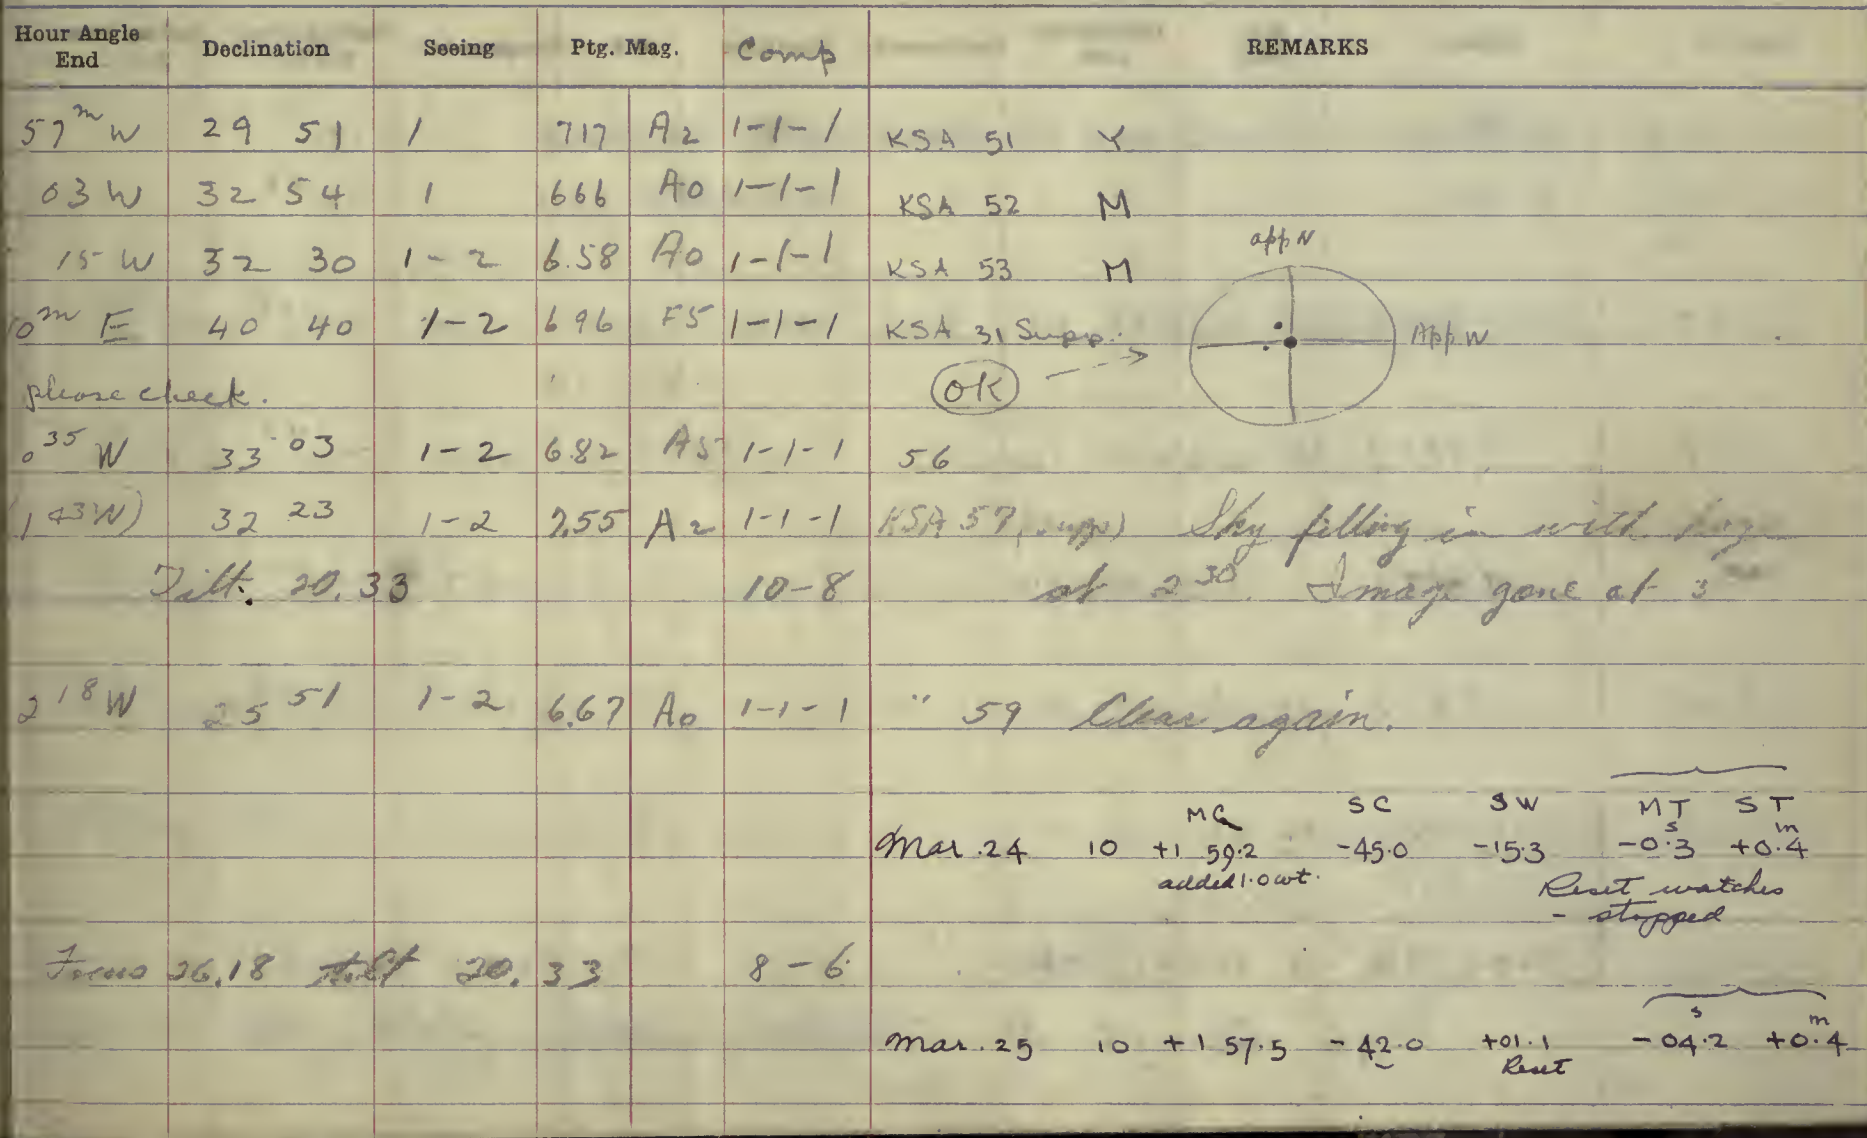 Hour Angle End Declination Seeing Ptg. Mag. Comp REMARKS
57ᵐ W 29 51 1 717 A2 1-1-1 KSA 51 Y
03 W 32 54 1 666 A0 1-1-1 KSA 52 M
15 W 32 30 1-2 6.58 A0 1-1-1 KSA 53 M
app N
10ᵐ E 40 40 1-2 696 F5 1-1-1 KSA 31 Supp. App W
please check. OK
0 35 W 33 03 1-2 6.82 A5 1-1-1 56
1 43 W) 32 23 1-2 7.55 A2 1-1-1 KSA 57, supp) Sky filling in with haze
Tilt. 20.33 10-8 at 2 30. Image gone at 3
2 18 W 25 51 1-2 6.67 A0 1-1-1 " 59 Clear again.
MC SC SW MT ST
Mar. 24 10 +1 59.2 -45.0 -15.3 -0ˢ.3 +0ᵐ.4
added 1.0 wt. Reset watches
- stopped
Focus 26.18 tilt 20.33 8-6
Mar. 25 10 +1 57.5 -42.0 +01.1 -04ˢ.2 +0ᵐ.4
Reset